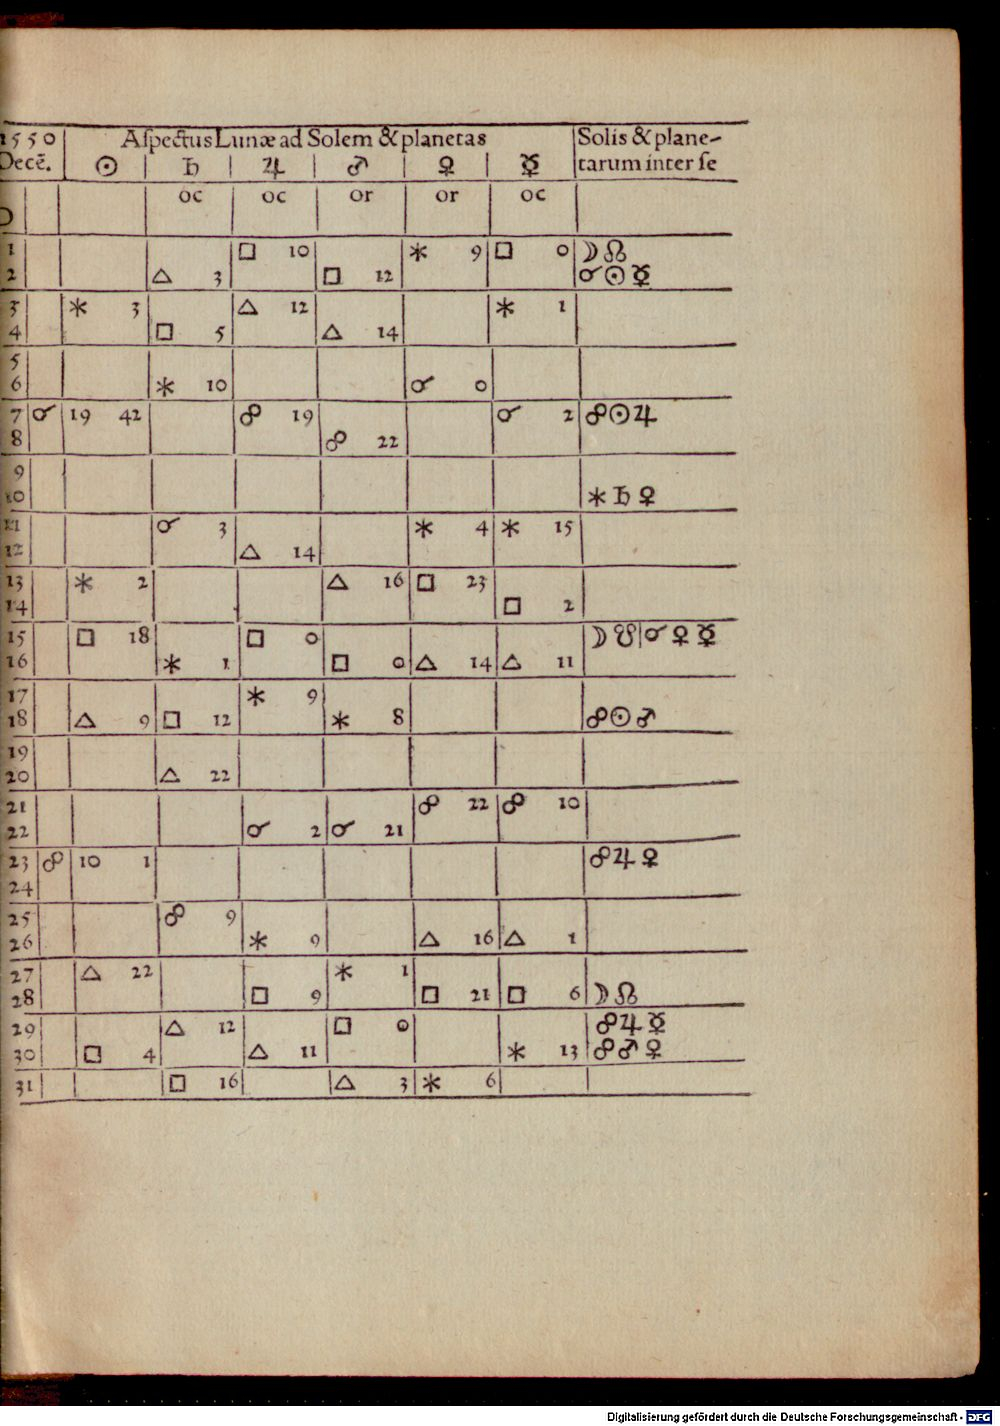 1550 Aſpectus Lunæ ad Solem & planetas Solis & plane-
Decē. ☉ ♄ ♃ ♂ ♀ ☿ tarum inter ſe
oc oc or or oc
1 □ 10 ⚹ 9 □ 0 ☽ ☊
2 △ 3 □ 12 ☌ ☉ ☿
3 ⚹ 3 △ 12 ⚹ 1
4 □ 5 △ 14
5
6 ⚹ 10 ☌ 0
7 ☌ 19 42 ☍ 19 ☌ 2 ☍ ☉ ♃
8 ☍ 22
9
10 ⚹ ♄ ♀
11 ☌ 3 ⚹ 4 ⚹ 15
12 △ 14
13 ⚹ 2 △ 16 □ 23
14 □ 2
15 □ 18 □ 0 ☽ ☋ ☌ ♀ ☿
16 ⚹ 1 □ 0 △ 14 △ 11
17 ⚹ 9
18 △ 9 □ 12 ⚹ 8 ☍ ☉ ♂
19
20 △ 22
21 ☍ 22 ☍ 10
22 ☌ 2 ☌ 21
23 ☍ 10 1 ☍ ♃ ♀
24
25 ☍ 9
26 ⚹ 9 △ 16 △ 1
27 △ 22 ⚹ 1
28 □ 9 □ 21 □ 6 ☽ ☊
29 △ 12 □ 0 ☍ ♃ ☿
30 □ 4 △ 11 ⚹ 13 ☍ ♂ ♀
31 □ 16 △ 3 ⚹ 6
Digitalisierung gefördert durch die Deutsche Forschungsgemeinschaft - DFG